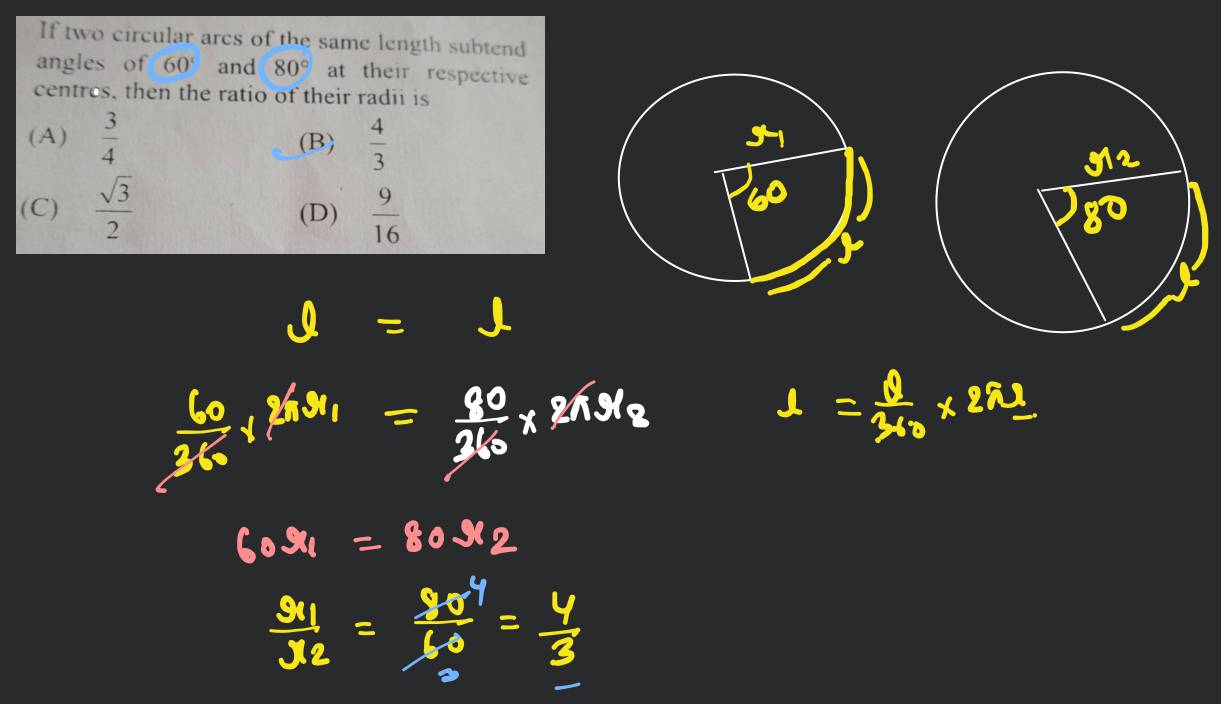 If two circular arcs of the same length subtend
angles of 60° and 80° at their respective
centres, then the ratio of their radii is
(A) 3/4 (B) 4/3
(C) √3/2 (D) 9/16
r1
60
l
r2
80
l
l = l
60/360 × 2πr1 = 80/360 × 2πr2
l = θ/360 × 2πr
60r1 = 80r2
r1/r2 = 80/60 = 4/3
4
3